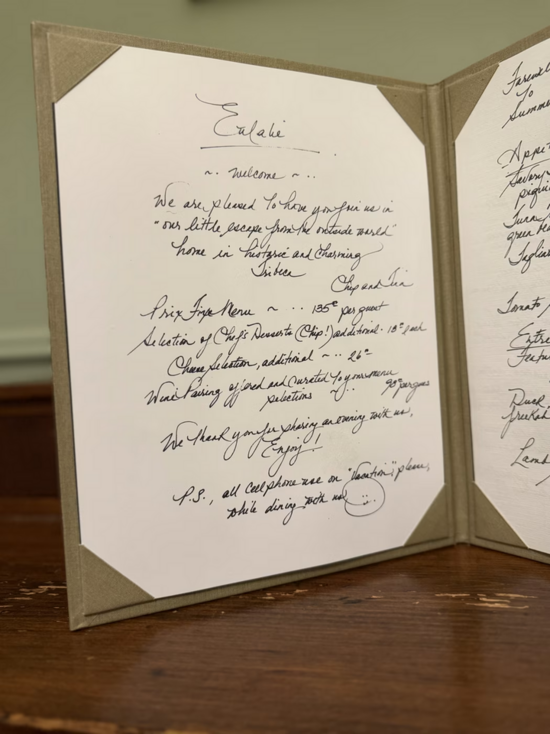 Eulalie
~ . welcome ~ . .
We are pleased to have you join us in
"our little escape from the outside world"
home in historic and charming
Tribeca
Chip and Tina
Prix Fixe Menu ~ . . 135 per guest
Selection of Chef's Desserts (Chip!) additional . 18 each
Cheese Selection, additional ~ . . 26
Wine Pairing offered and curated to your menu
selections ~ . 90 per guest
We thank you for sharing an evening with us,
Enjoy!
P.S., all cell phone use on "Vacation", please,
while dining with us
Farewell
To
Summer
Appe
Savory
Tuna
green be
Taglia
Tomato
Entre
Featu
Duck
Lamb